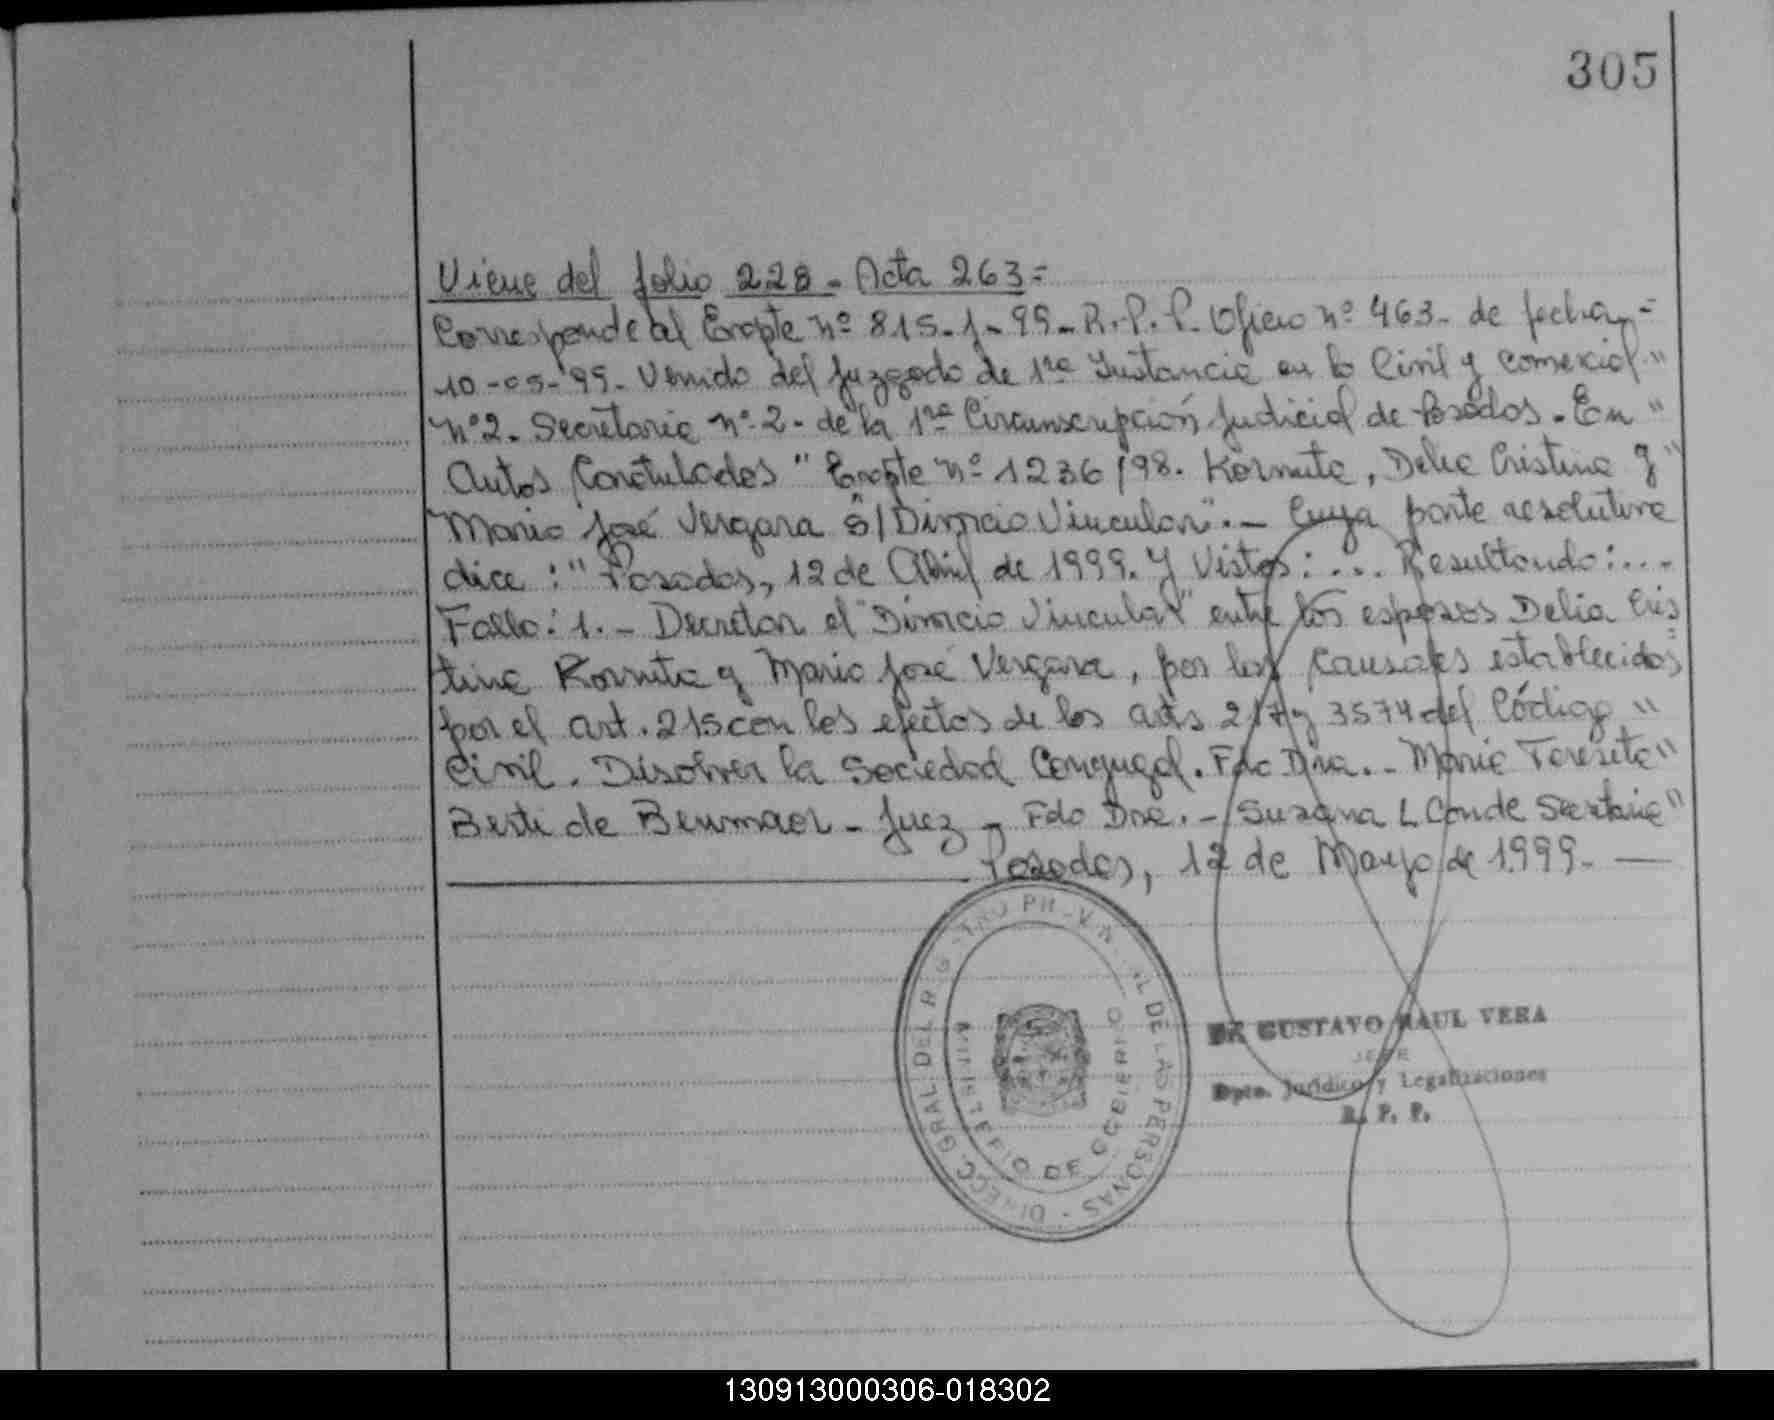 305
Viene del folio 228 - Acta 263 =
Corresponde al Expte nº 815-J-99- R.P.P. Oficio nº 463- de fecha =
10-05-99- Venido del Juzgado de 1ra Instancia en lo Civil y Comercial "
nº 2. Secretaria nº 2- de la 1ra Circunscripción Judicial de Posadas. En "
Autos Caratulados "Expte nº 1236/98. Kornuta, Delia Cristina y "
Mario José Vergara S/ Divorcio Vincular". - Cuya parte resolutiva
dice: "Posadas, 12 de Abril de 1999. Y Vistos: ... Resultando: ...
Fallo: 1. - Decretar el "Divorcio Vincular" entre los esposos Delia Cris
tina Kornuta y Mario José Vergara, por las causales establecidas =
por el art. 215 con los efectos de los arts 217 y 3574 del Código "
Civil. Disolver la Sociedad Conyugal. Fdo Dra. - Maria Teresita "
Berti de - Juez - Fdo Dra. - Susana L Conde Secretaria "
Posadas, 12 de Mayo de 1.999. -
DIRECC. GRAL. DEL REGISTRO PROVINCIAL DE LAS PERSONAS -
MINISTERIO DE GOBIERNO
DR. GUSTAVO RAUL VERA
JEFE
Dpto. Jurídico y Legalizaciones
R. P. P.
130913000306-018302